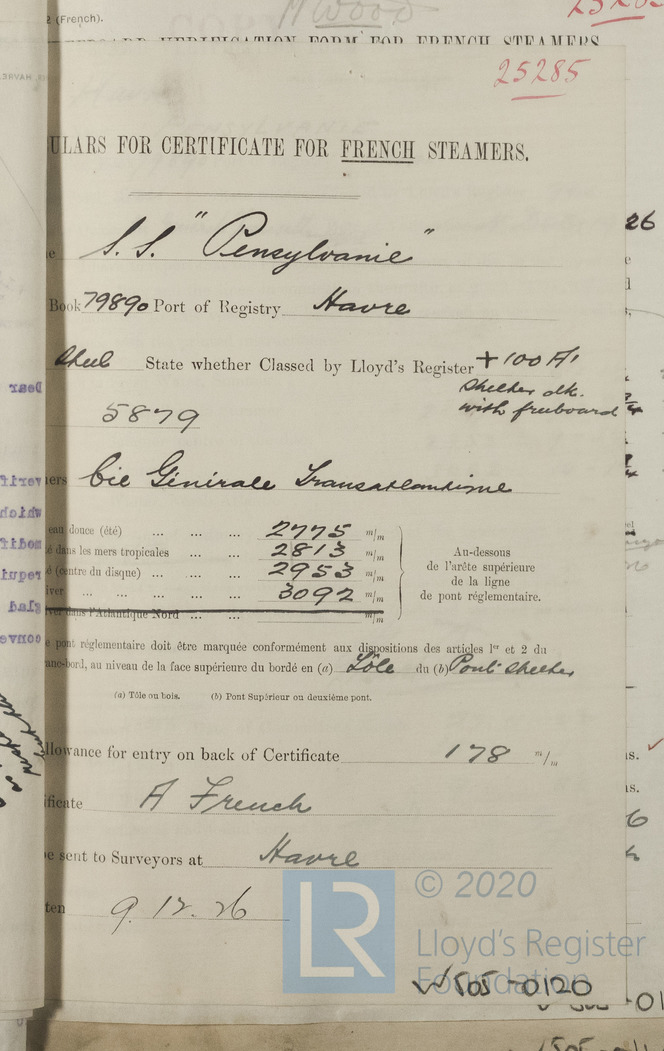 2 (French).
M Wood
VERIFICATION FORM FOR FRENCH STEAMERS
25285
ULARS FOR CERTIFICATE FOR FRENCH STEAMERS.
e S.S. "Pensylvanie"
Book 79890 Port of Registry Havre
Steel State whether Classed by Lloyd's Register + 100 A1
Shelter dk.
with freeboard
5879
ers Cie Générale Transatlantique
eau douce (été) ... ... ... 2775 m/m
é dans les mers tropicales ... ... 2813 m/m
é (centre du disque) ... ... ... 2953 m/m
iver ... ... ... ... 3092 m/m
ver dans l'Atlantique Nord ... ... m/m
Au-dessous
de l'arête supérieure
de la ligne
de pont réglementaire.
e pont réglementaire doit être marquée conformément aux dispositions des articles 1er et 2 du
anc-bord, au niveau de la face supérieure du bordé en (a) Tôle du (b) Pont Shelter
(a) Tôle ou bois. (b) Pont Supérieur ou deuxième pont.
llowance for entry on back of Certificate 178 m/m
ificate A French
e sent to Surveyors at Havre
ten 9.12.26
LR
© 2020
Lloyd's Register
Foundation
W505-0120